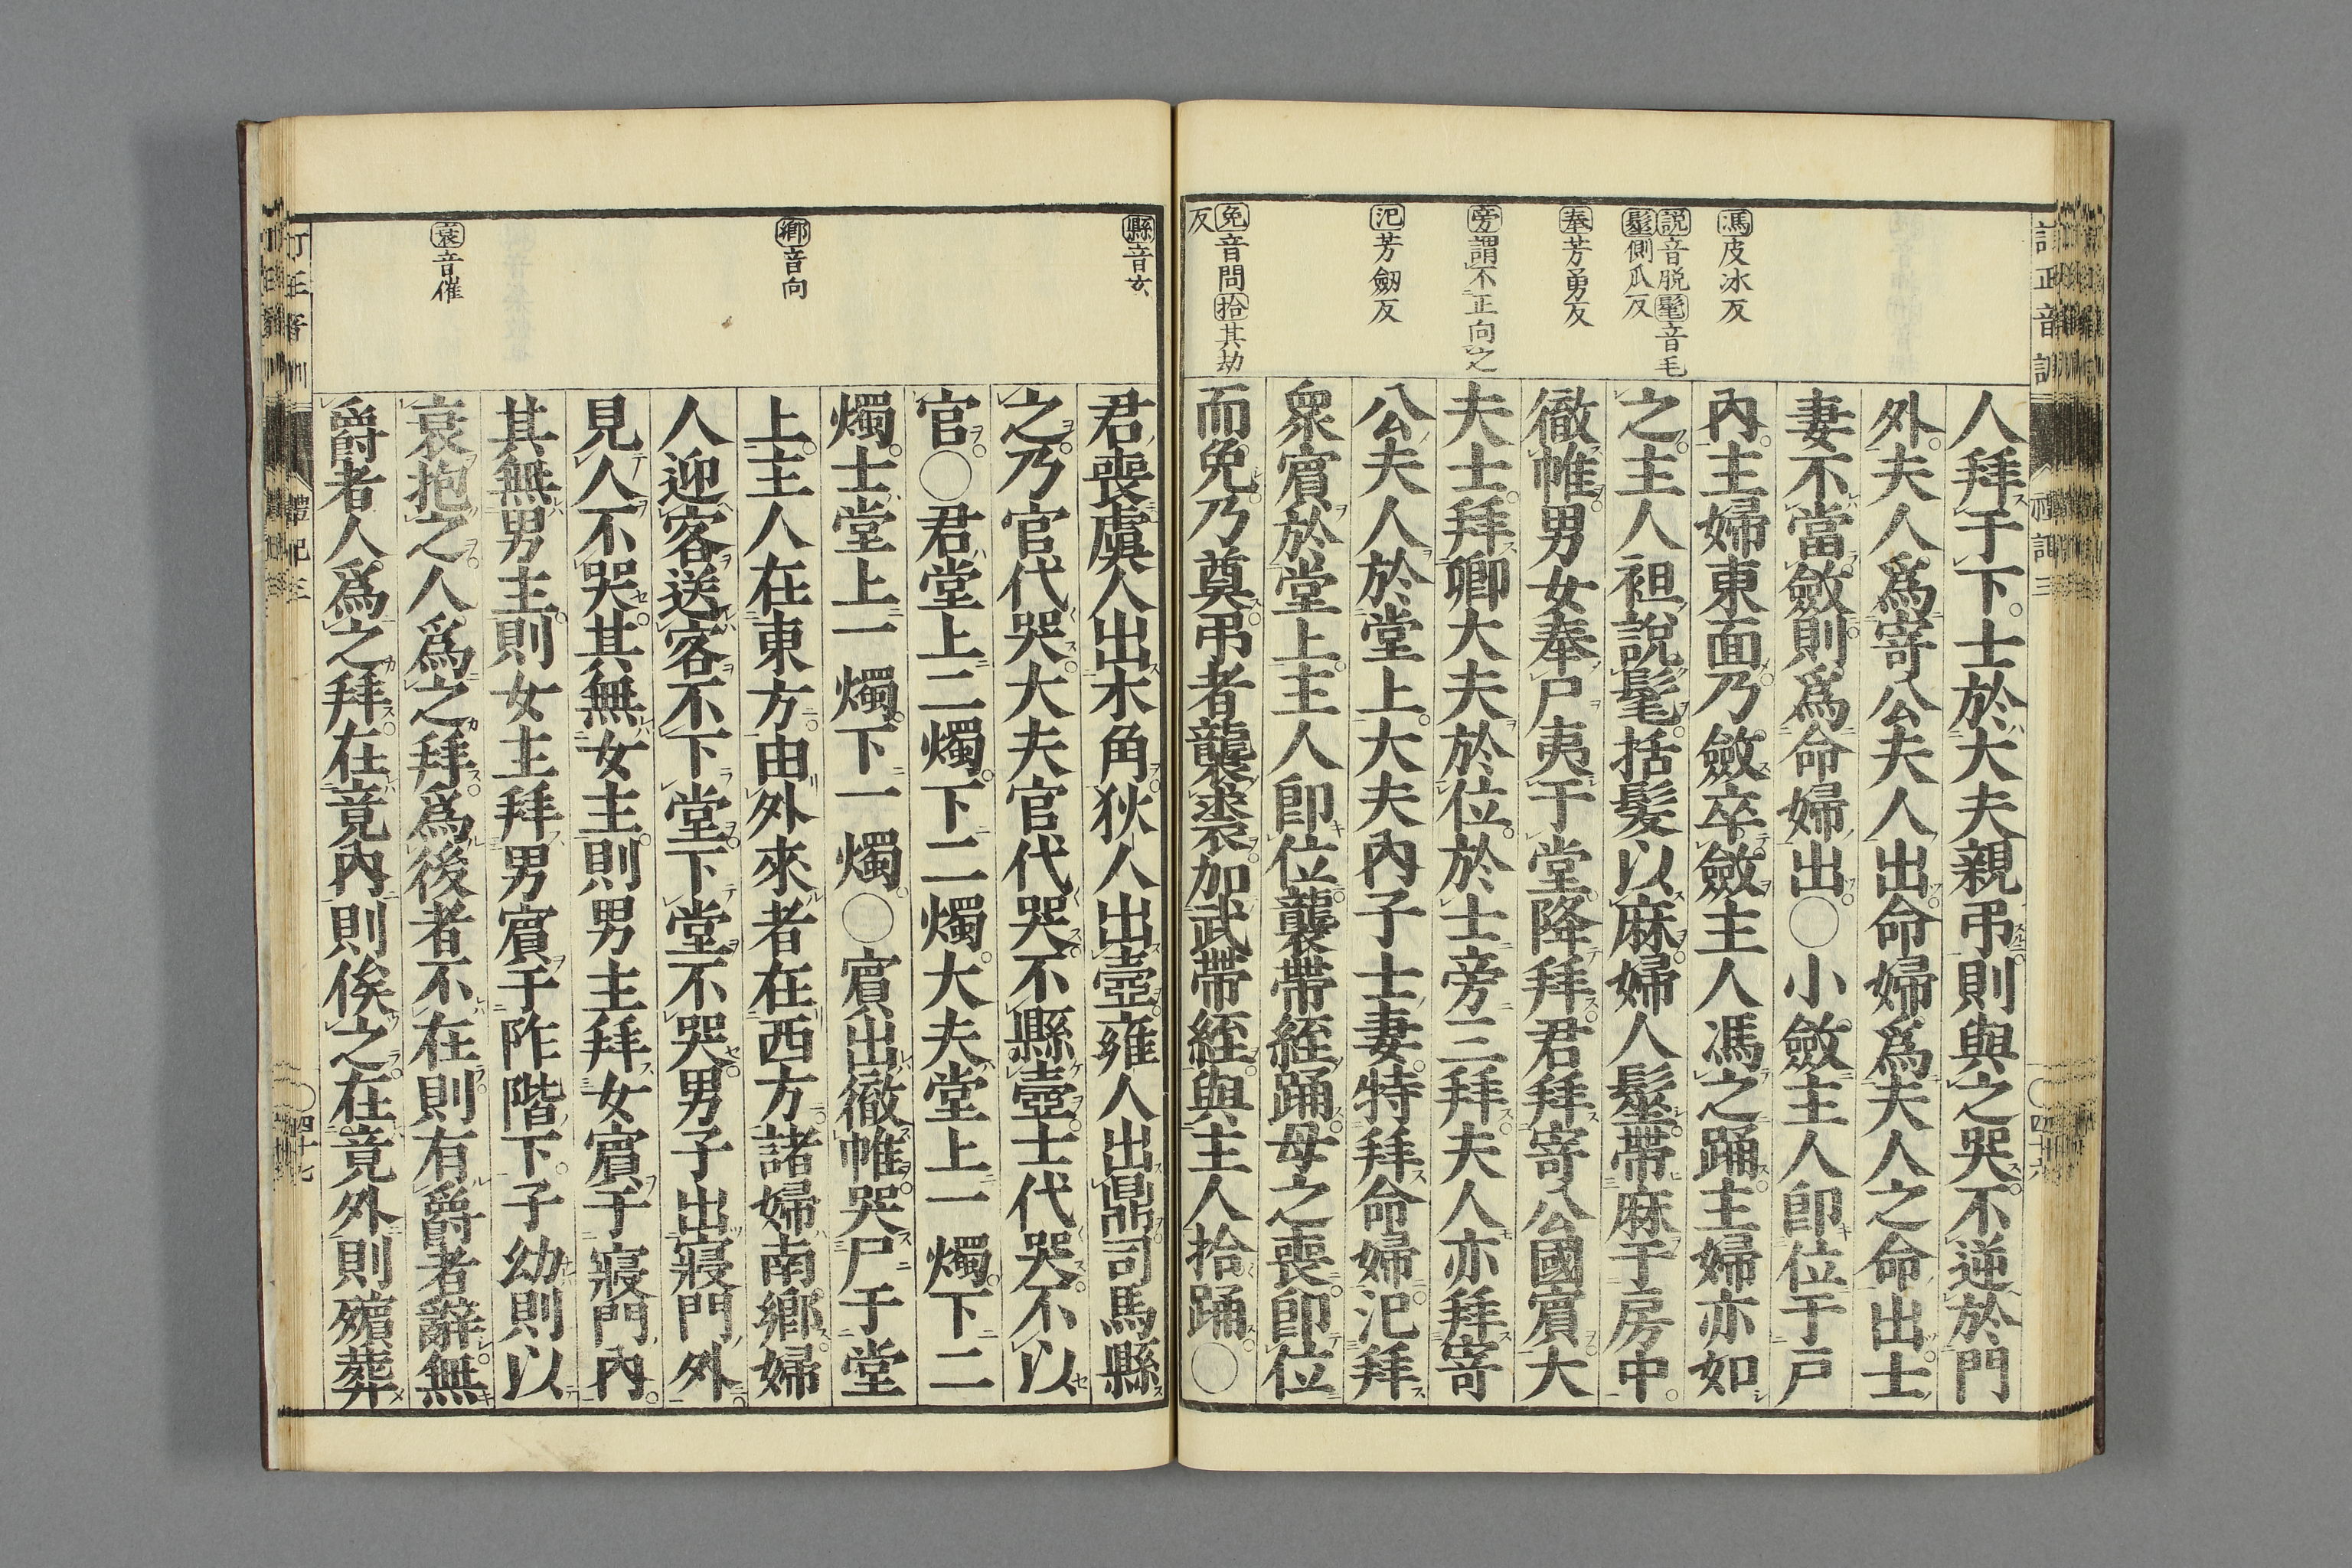 馮皮冰反
説音脱髦音毛
髽側瓜反
奉芳勇反
旁謂不正向之
氾芳劔反
免音問拾其劫
反
人拜于下士於大夫親弔則與之哭不逆於門
外夫人爲寄公夫人出命婦爲夫人之命出士
妻不當斂則爲命婦出○小斂主人即位于戸
內主婦東面乃斂卒斂主人馮之踊主婦亦如
之主人袒說髦括髮以麻婦人髽帶麻于房中
徹帷男女奉尸夷于堂降拜君拜寄公國賓大
夫士拜卿大夫於位於士旁三拜夫人亦拜寄
公夫人於堂上大夫內子士妻特拜命婦氾拜
衆賓於堂上主人即位襲帶絰踊母之喪即位
而免乃奠弔者襲裘加武帶絰與主人拾踊○
縣音玄
鄉音向
衰音催
君喪虞人出木角狄人出壺雍人出鼎司馬縣
之乃官代哭大夫官代哭不縣壺士代哭不以
官○君堂上二燭下二燭大夫堂上一燭下二
燭士堂上一燭下一燭○賓出徹帷哭尸于堂
上主人在東方由外來者在西方諸婦南鄉婦
人迎客送客不下堂下堂不哭男子出寢門外
見人不哭其無女主則男主拜女賓于寢門內
其無男主則女主拜男賓于阼階下子幼則以
衰抱之人爲之拜爲後者不在則有爵者辭無
爵者人爲之拜在竟內則俟之在竟外則殯葬